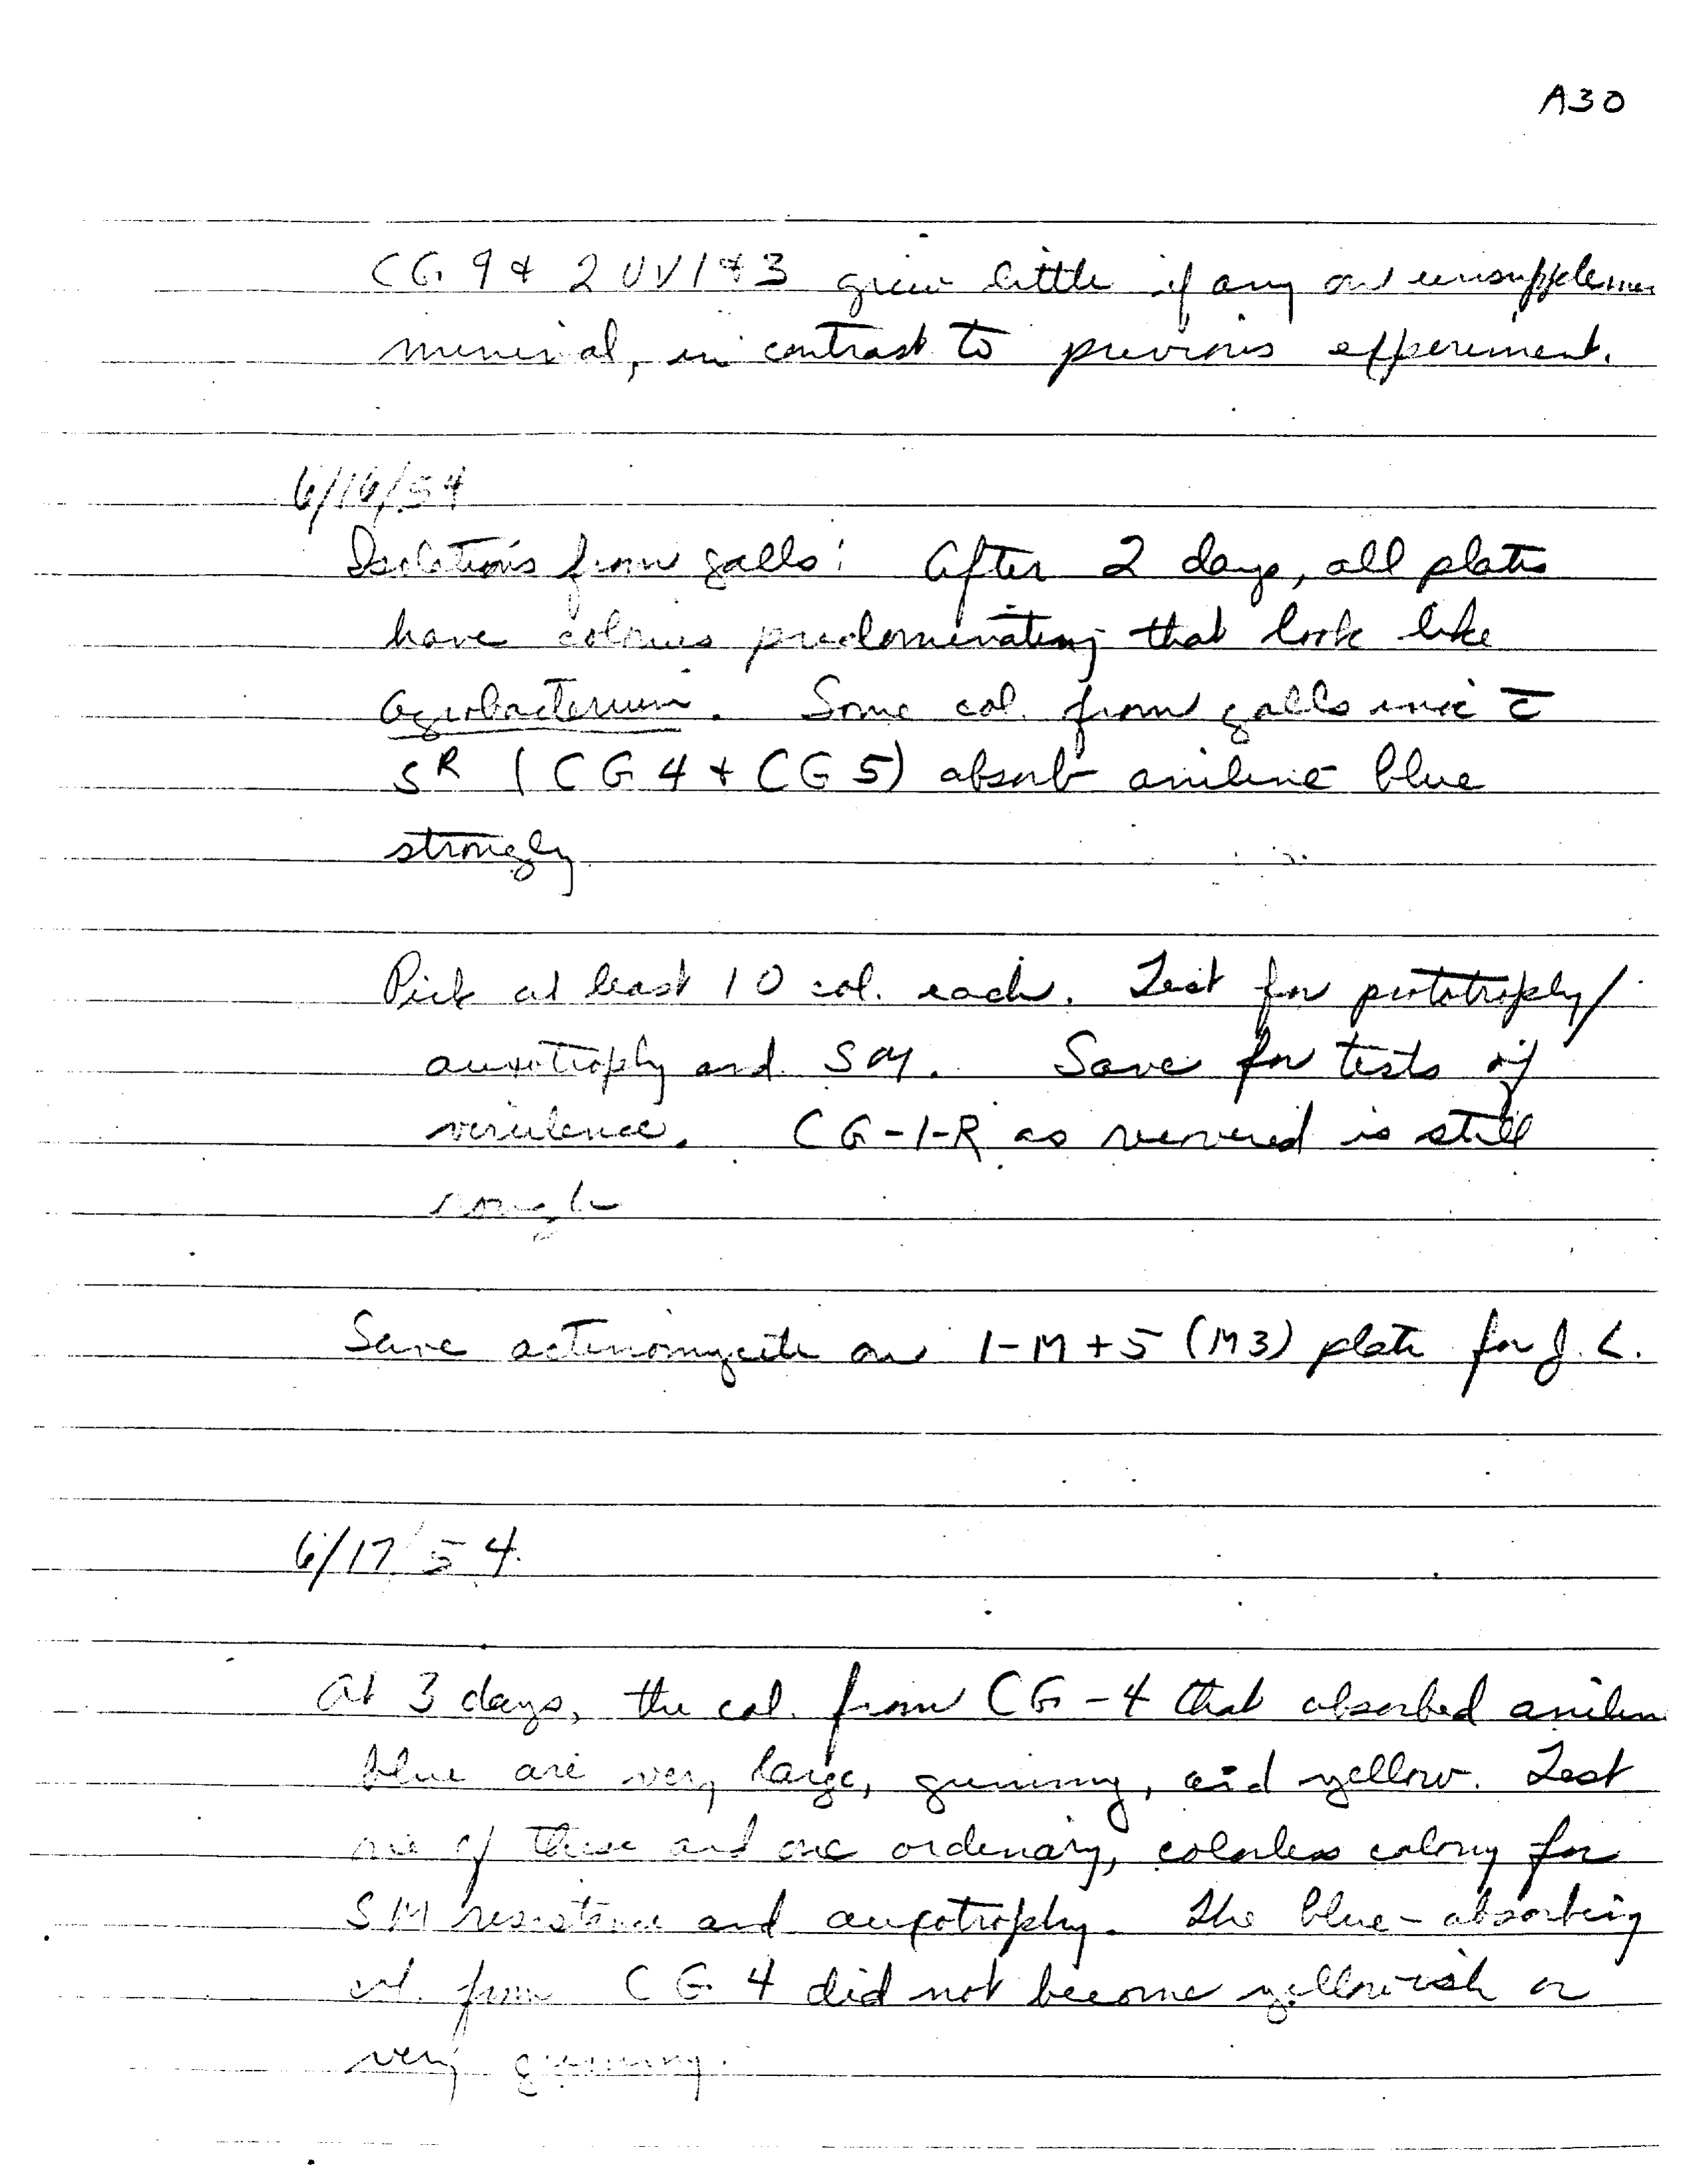 A30
CG 9 & 2 UV 1 & 3 grew little if any on unsupplemen
minimal, in contrast to previous experiment.
6/16/54
Isolations from galls: After 2 days, all plates
have colonies predominating that look like
Agrobacterium. Some col. from galls inoc c̄
SR (CG 4 + CG 5) absorb aniline blue
strongly
Pick at least 10 col. each. Test for prototrophy/
auxotrophy and SM. Save for tests of
virulence. CG-1-R as recovered is still
rough
Save actinomycete on 1-M+5 (M3) plate for J.L.
6/17/54.
At 3 days, the col. from CG-4 that absorbed anilin
blue are very large, gummy, and yellow. Test
one of these and one ordinary, colorless colony for
SM resistance and auxotrophy. The blue-absorbing
col. from CG 4 did not become yellowish or
very gummy.